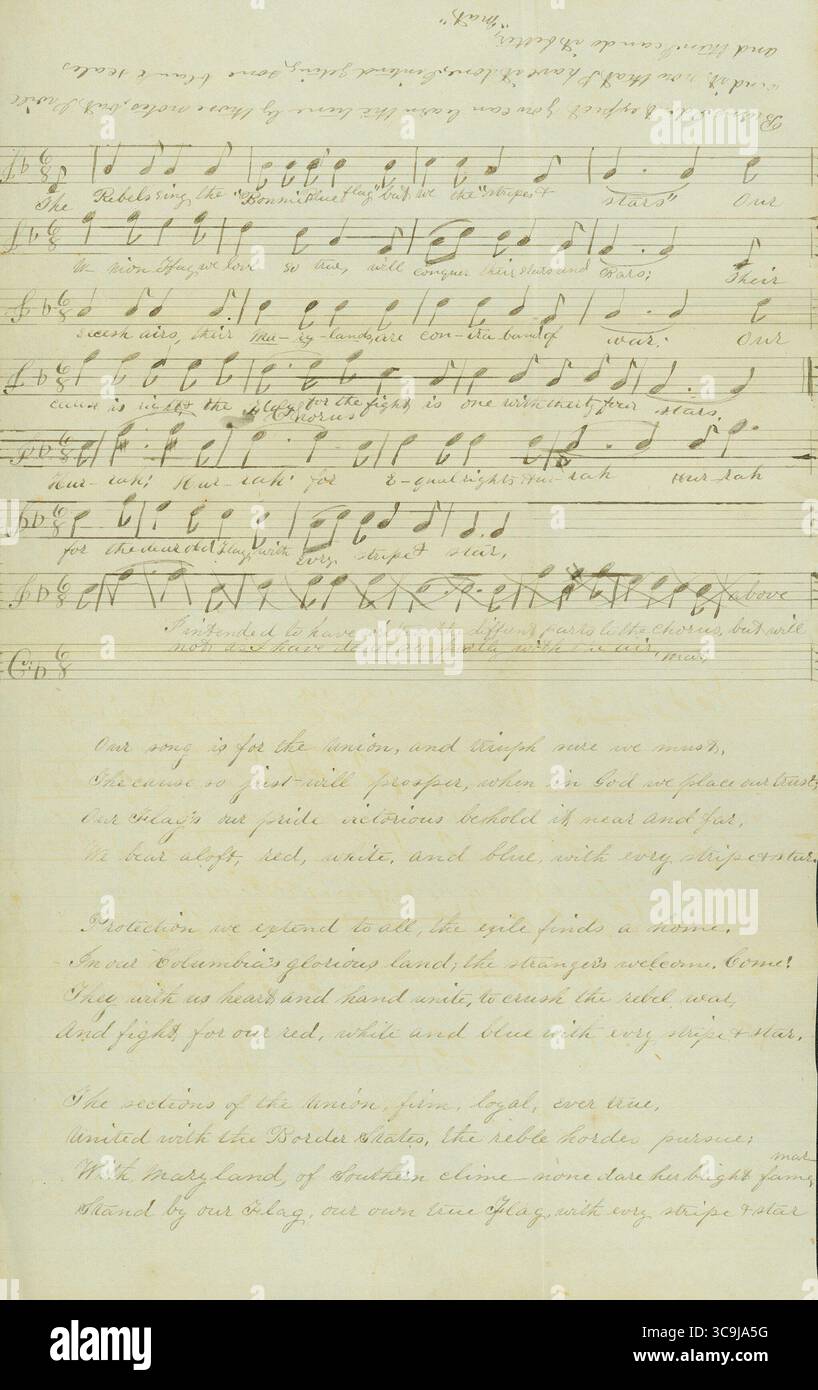 But I do expect you can learn this tune by those notes, but I will
send it now that I have it done, I intend geting some blank scales
and then I can do it better,
"Mat"
The Rebels sing the "Bonnie Blue flag" but we the "stripes & stars" Our
U-nion Flag we love so true, will conquer their stars and Bars; Their
secesh airs, their Ma-ry-lands, are con-tra band of war. Our
cause is right, the for the fight is one with thirty four stars.
Chorus
Hur-rah! Hur-rah! for E-qual rights Hur-rah Hur-rah
for the dear old Flag, with evry stripe & star.
above
I intended to have the diffent parts to the chorus, but will
not as I have with the air, Mat,
Our song is for the Union, and triuph sure we must,
The cause so just will prosper, when in God we place our trust;
Our Flag's our pride victorious behold it, near and far,
We bear aloft, red, white, and blue, with evry stripe & star.
Protection we extend to all, the exile finds a home.
In our Columbia's glorious land; the stranger's welcome. Come!
They with us heart and hand unite, to crush the rebel war,
And fight, for our red, white and blue with evry stripe & star.
The sections of the Union, firm, loyal, ever true,
United with the Border States, the reble hordes pursue;
mar
With Maryland, of Southern clime none dare her bright fame,
Stand by our Flag, our own true Flag, with evry stripe & star
alamy
alamy
alamy
Image ID: 3C9JA5G
www.alamy.com